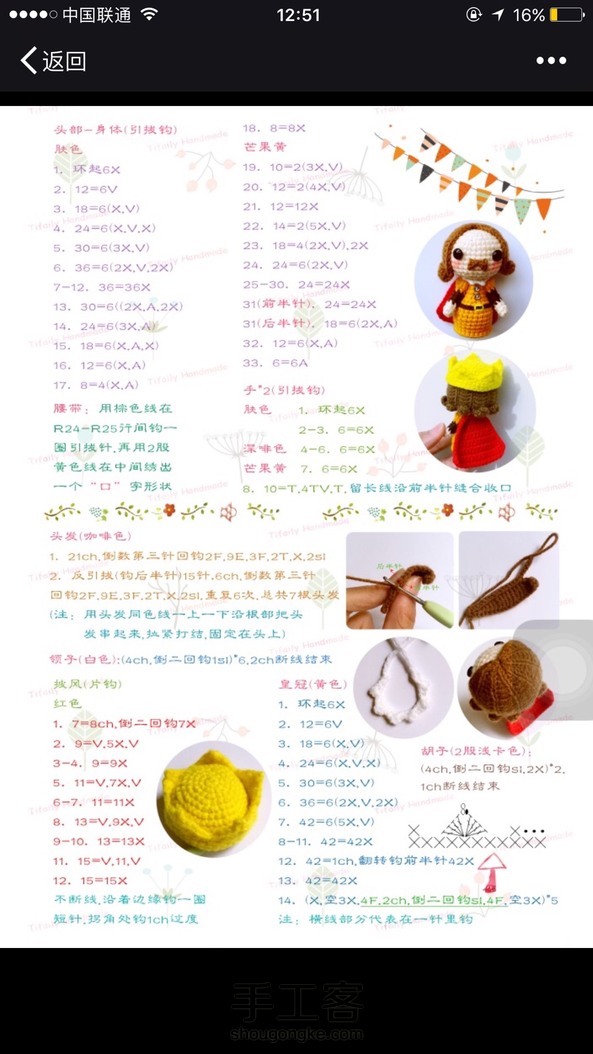 中国联通
12:51
16%
返回
头部-身体(引拔钩)
肤色
1. 环起6X
2. 12=6V
3. 18=6(X,V)
4. 24=6(X,V,X)
5. 30=6(3X,V)
6. 36=6(2X,V,2X)
7-12. 36=36X
13. 30=6((2X,A,2X)
14. 24=6(3X,A)
15. 18=6(X,A,X)
16. 12=6(X,A)
17. 8=4(X,A)
腰带：用棕色线在
R24-R25行间钩一
圈引拔针,再用2股
黄色线在中间绣出
一个“口”字形状
18. 8=8X
芒果黄
19. 10=2(3X,V)
20. 12=2(4X,V)
21. 12=12X
22. 14=2(5X,V)
23. 18=4(2X,V),2X
24. 24=6(2X,V)
25-30. 24=24X
31(前半针). 24=24X
31(后半针). 18=6(2X,A)
32. 12=6(X,A)
33. 6=6A
手*2(引拔钩)
肤色 1. 环起6X
2-3. 6=6X
深咖色 4-6. 6=6X
芒果黄 7. 6=6X
8. 10=T,4TV,T,留长线沿前半针缝合收口
头发(咖啡色)
1. 21ch,倒数第三针回钩2F,9E,3F,2T,X,2sl
2. 反引拔(钩后半针)15针,6ch,倒数第三针
回钩2F,9E,3F,2T,X,2sl,重复6次,总共7根头发
(注：用头发同色线一上一下沿根部把头
发串起来,拉紧打结,固定在头上)
后半针
领子(白色):(4ch,倒二回钩1sl)*6,2ch断线结束
披风(片钩)
红色
1. 7=8ch,倒二回钩7X
2. 9=V,5X,V
3-4. 9=9X
5. 11=V,7X,V
6-7. 11=11X
8. 13=V,9X,V
9-10. 13=13X
11. 15=V,11,V
12. 15=15X
不断线,沿着边缘钩一圈
短针,拐角处钩1ch过度
皇冠(黄色)
1. 环起6X
2. 12=6V
3. 18=6(X,V)
4. 24=6(X,V,X)
5. 30=6(3X,V)
6. 36=6(2X,V,2X)
7. 42=6(5X,V)
8-11. 42=42X
12. 42=1ch,翻转钩前半针42X
13. 42=42X
14. (X,空3X,4F,2ch,倒二回钩sl,4F,空3X)*5
注：横线部分代表在一针里钩
胡子(2股浅卡色):
(4ch,倒二回钩sl,2X)*2,
1ch断线结束
手工客
shougongke.com